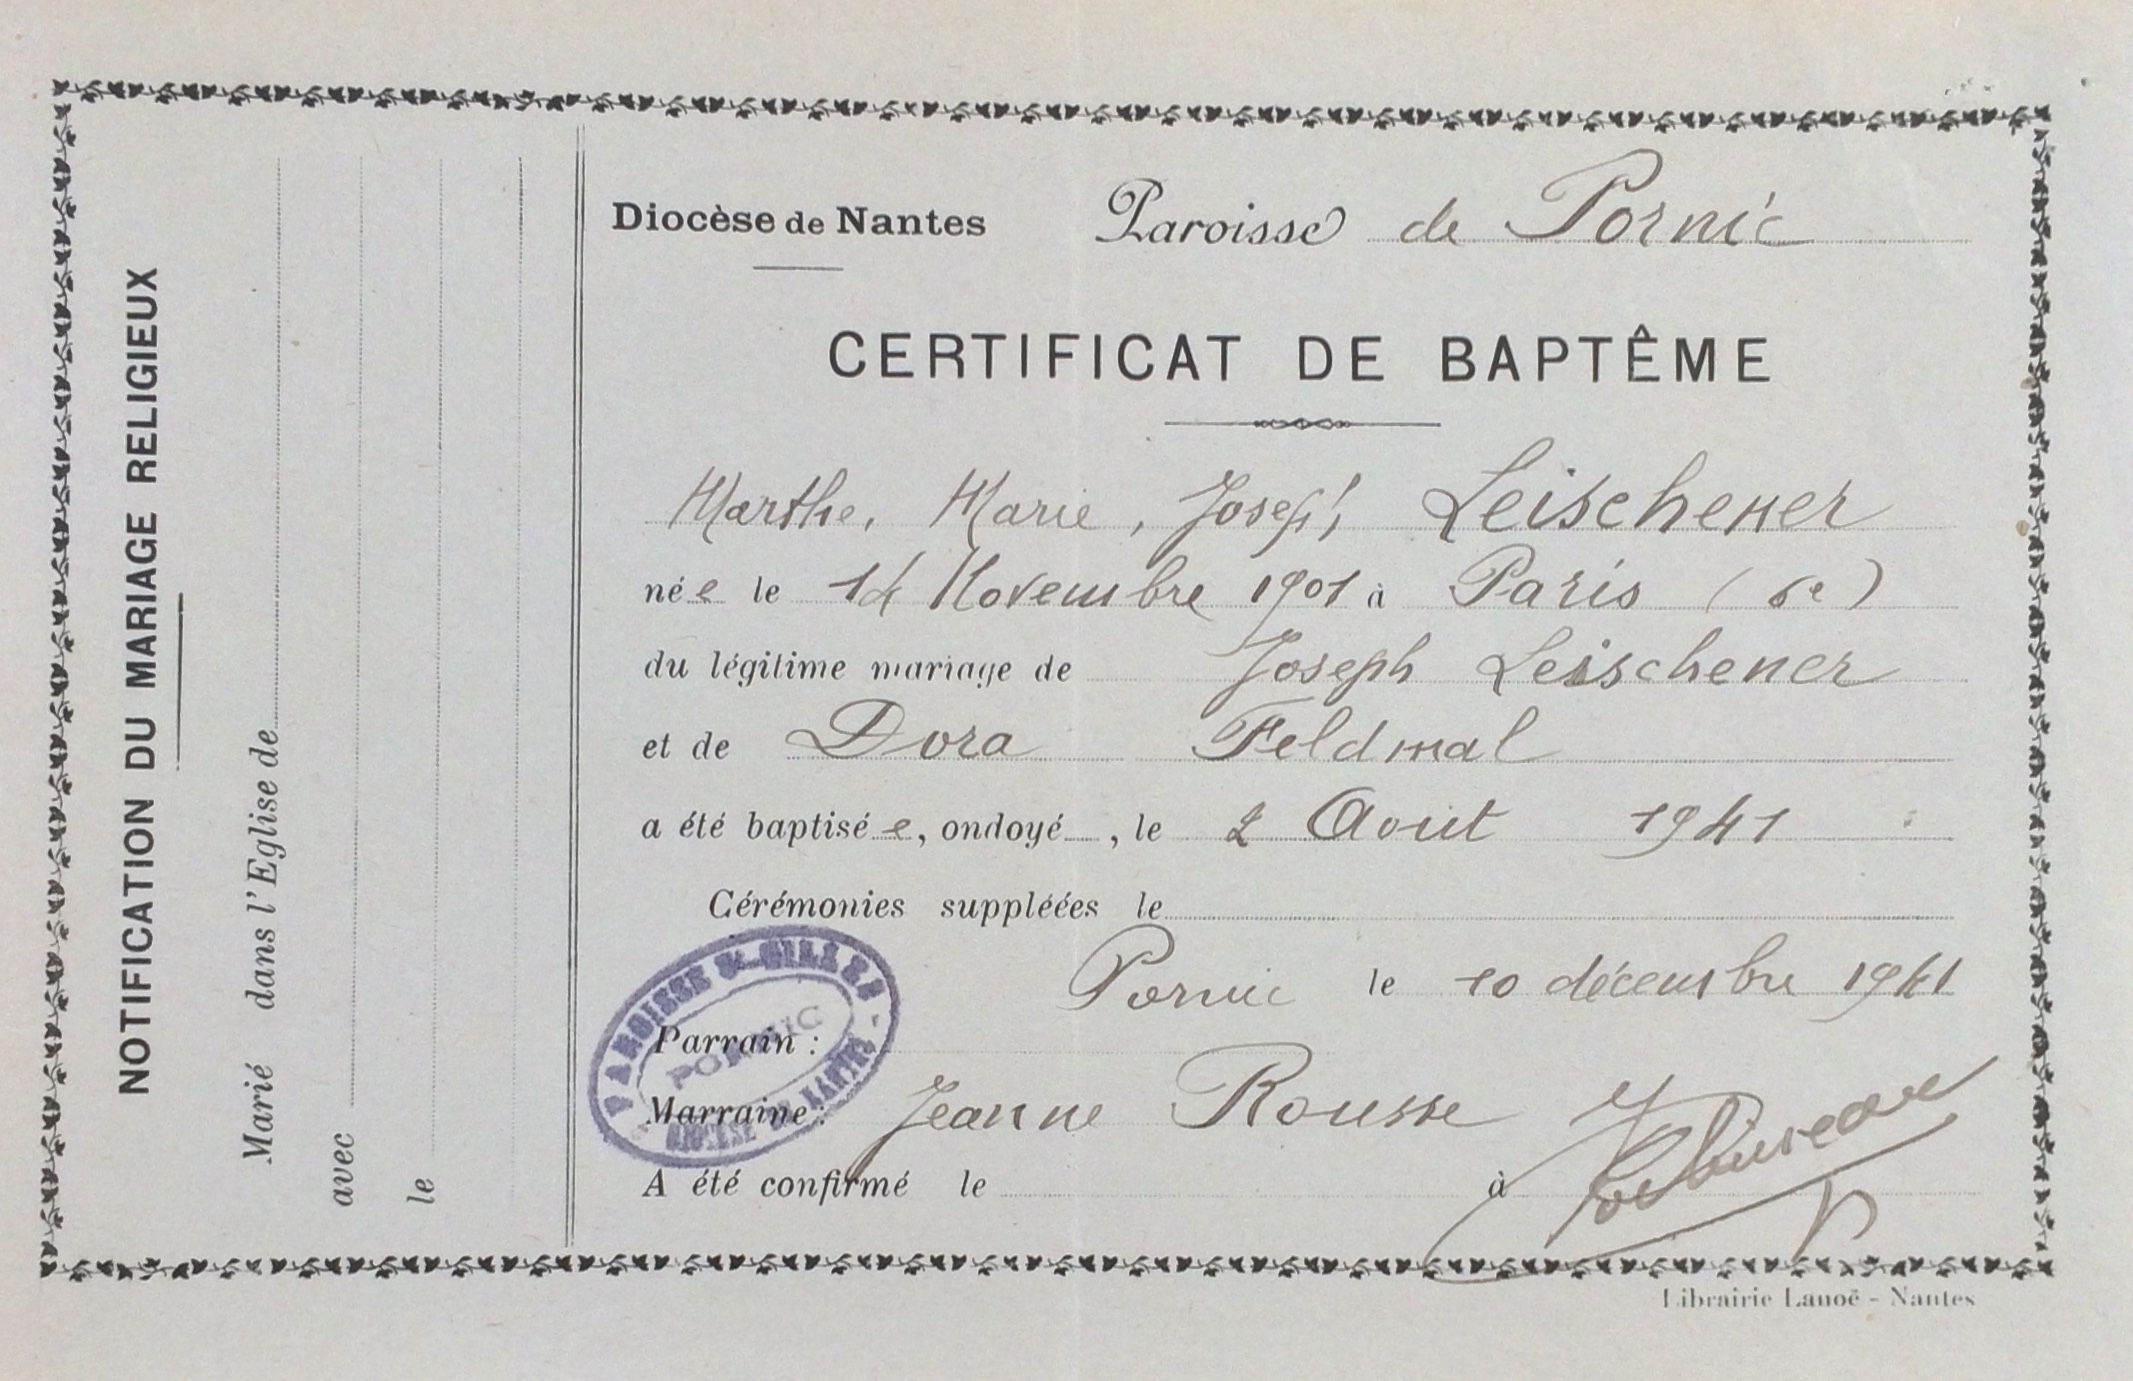 NOTIFICATION DU MARIAGE RELIGIEUX
Marié dans l'Eglise de
avec
le
Diocèse de Nantes Paroisse de Pornic
CERTIFICAT DE BAPTÊME
Marthe, Marie, Joseph, Leischener
née le 14 Novembre 1901 à Paris (6e)
du légitime mariage de Joseph Leischener
et de Dora Feldmal
a été baptisée, ondoyé , le 2 Aout 1941
Cérémonies suppléées le
Pornic le 10 décembre 1941
PAROISSE St GILLES
PORNIC
DIOCESE DE NANTES
Parrain :
Marraine : Jeanne Rousse
A été confirmé le à
Librairie Lanoë - Nantes